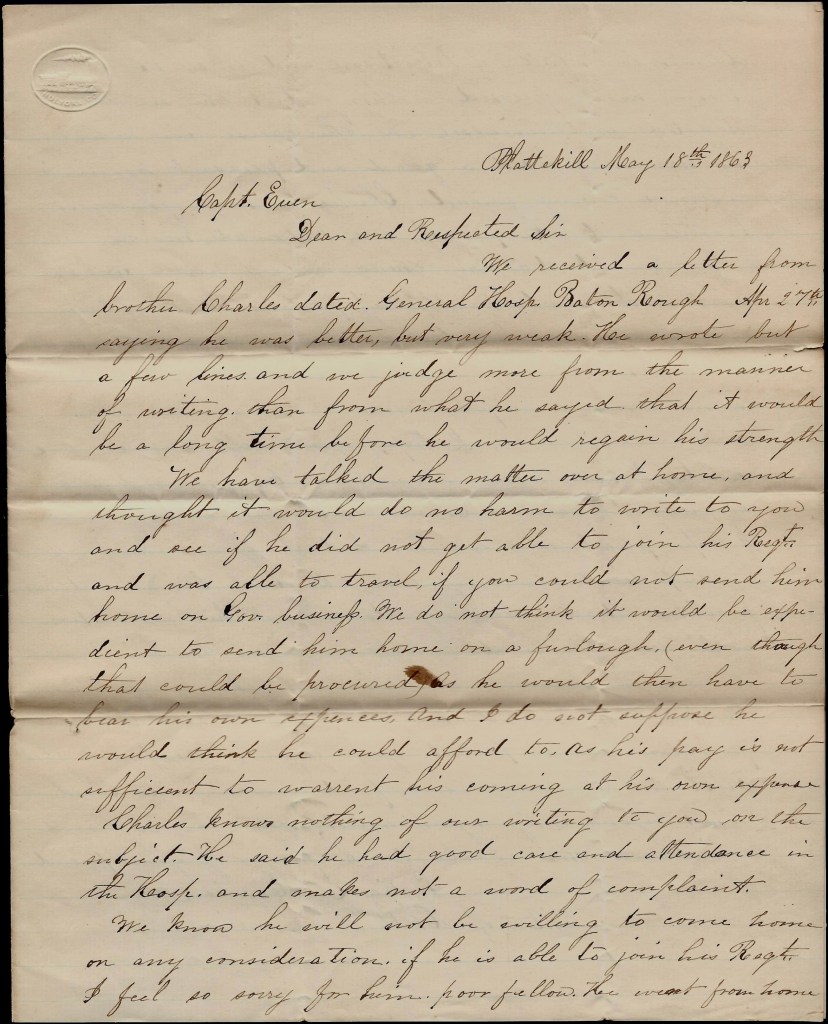 Plattekill May 18th 1863
Capt. Euen
Dear and Respected Sir
We received a letter from
brother Charles dated. General Hosp. Baton Rough Apr 27th,
saying he was better, but very weak. He wrote but
a few lines. and we judge more from the manner
of writing. than from what he sayed. that it would
be a long time before he would regain his strength
We have talked the matter over at home, and
thought it would do no harm to write to you
and see if he did not get able to join his Regt.
and was able to travel, if you could not send him
home on Gov. business. We do not think it would be expe-
dient to send him home on a furlough, (even though
that could be procured) as he would then have to
bear his own expences, and I do not suppose he
would think he could afford to, as his pay is not
sufficient to warrent his coming at his own expense
Charles knows nothing of our writing to you on the
subject. He said he had good care and attendance in
the Hosp. and makes not a word of complaint.
We know he will not be willing to come home
on any consideration. if he is able to join his Regt.
I feel so sorry for him. poor fellow. He went from home